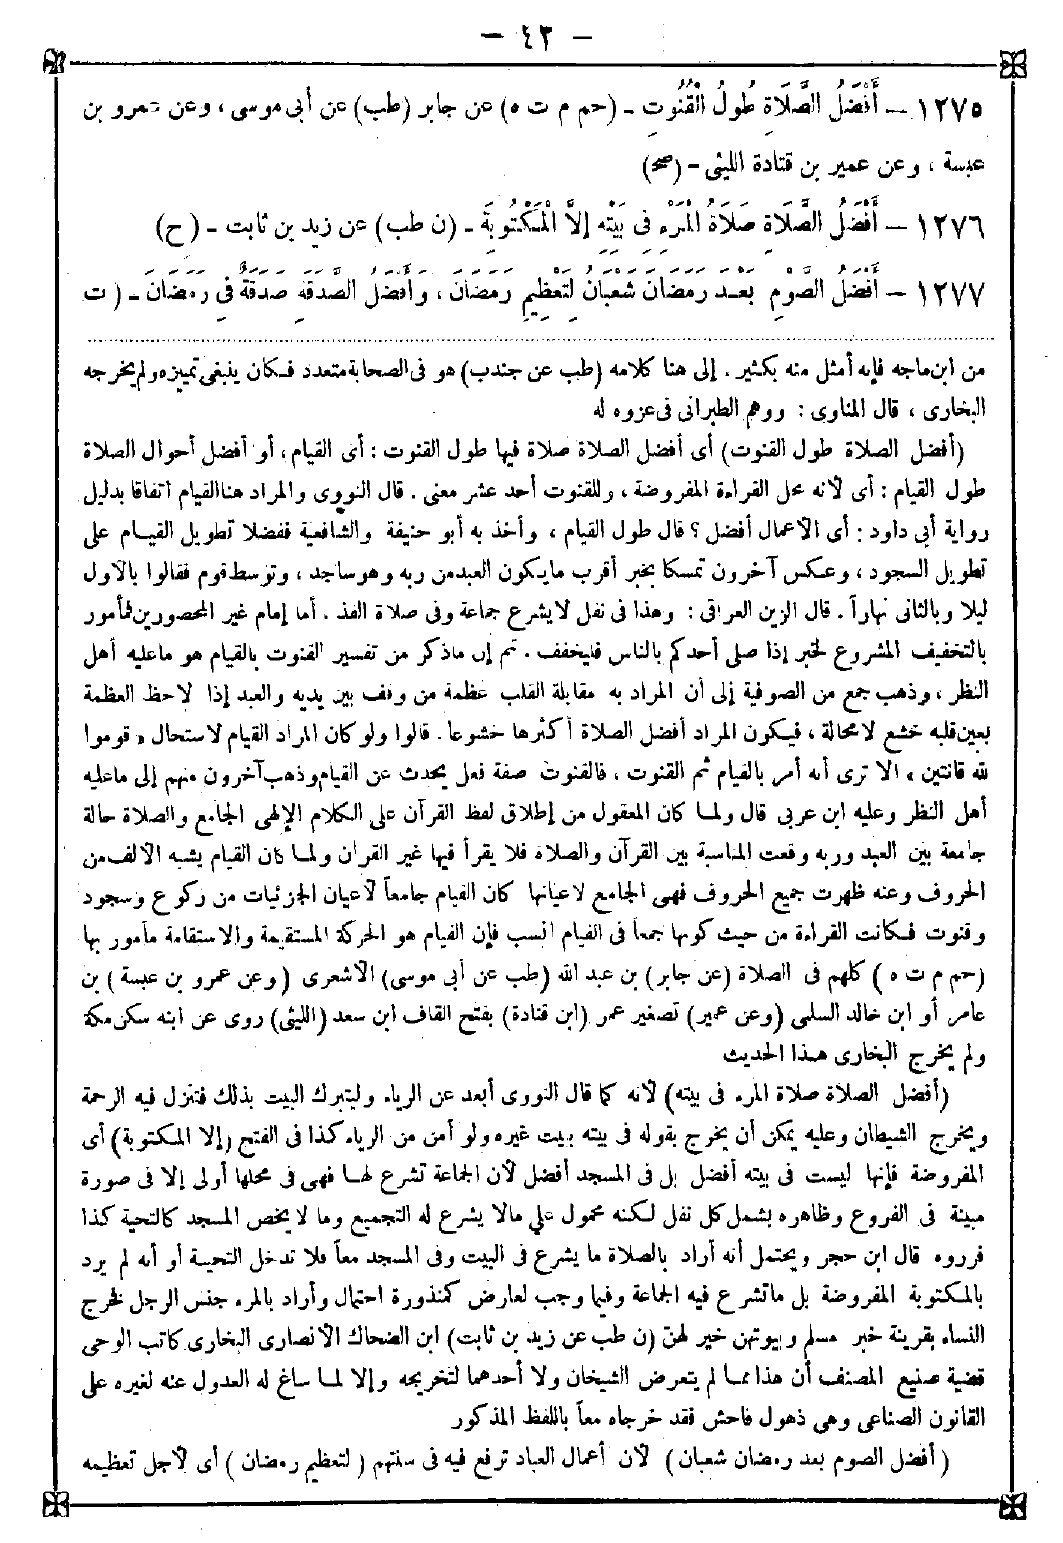 - ٤٢ -
١٢٧٥ - أَفْضَلُ الصَّلَاةِ طُولُ الْقُنُوتِ - (حم م ت ه) عن جابر (طب) عن أبى موسى ، وعن عمرو بن
عبسة ، وعن عمير بن قتادة الليثى - (صح)
١٢٧٦ - أَفْضَلُ الصَّلَاةِ صَلَاةُ الْمَرْءِ فِى بَيْتِهِ إِلَّا الْمَكْتُوبَةَ - (ن طب) عن زيد بن ثابت - (ح)
١٢٧٧ - أَفْضَلُ الصَّوْمِ بَعْدَ رَمَضَانَ شَعْبَانُ لِتَعْظِيمِ رَمَضَانَ ، وَأَفْضَلُ الصَّدَقَةِ صَدَقَةٌ فِى رَمَضَانَ - (ت
من ابن ماجه فإنه أمثل منه بكثير . إلى هنا كلامه (طب عن جندب) هو فى الصحابة متعدد فكان ينبغى تمييزه ولم يخرجه
البخارى ، قال المناوى : ووهم الطبرانى فى عزوه له
(أفضل الصلاة طول القنوت) أى أفضل الصلاة صلاة فيها طول القنوت : أى القيام ، أو أفضل أحوال الصلاة
طول القيام : أى لأنه محل القراءة المفروضة ، وللقنوت أحد عشر معنى . قال النووى والمراد هنا القيام اتفاقا بدليل
رواية أبى داود : أى الأعمال أفضل ؟ قال طول القيام ، وأخذ به أبو حنيفة والشافعية ففضلا تطويل القيام على
تطويل السجود ، وعكس آخرون تمسكا بخبر أقرب ما يكون العبد من ربه وهو ساجد ، وتوسط قوم فقالوا بالأول
ليلا وبالثانى نهاراً . قال الزين العراقى : وهذا فى نفل لا يشرع جماعة وفى صلاة الفذ . أما إمام غير المحصورين فمأمور
بالتخفيف المشروع لخبر إذا صلى أحدكم بالناس فليخفف . ثم إن ماذكر من تفسير القنوت بالقيام هو ماعليه أهل
النظر ، وذهب جمع من الصوفية إلى أن المراد به مقابلة القلب عظمة من وقف بين يديه والعبد إذا لاحظ العظمة
بعين قلبه خشع لا محالة ، فيكون المراد أفضل الصلاة أكثرها خشوعا . قالوا ولو كان المراد القيام لاستحال « قوموا
لله قانتين » ألا ترى أنه أمر بالقيام ثم القنوت ، فالقنوت صفة فعل يحدث عن القيام وذهب آخرون منهم إلى ماعليه
أهل النظر وعليه ابن عربى قال ولما كان المعقول من إطلاق لفظ القرآن على الكلام الإلهى الجامع والصلاة حالة
جامعة بين العبد وربه وقعت المناسبة بين القرآن والصلاة فلا يقرأ فيها غير القرآن ولما كان القيام يشبه الألف من
الحروف وعنه ظهرت جميع الحروف فهى الجامع لأعيانها كان القيام جامعاً لأعيان الجزئيات من ركوع وسجود
وقنوت فكانت القراءة من حيث كونها جمعاً فى القيام انسب فإن القيام هو الحركة المستقيمة والاستقامة مأمور بها
(حم م ت ه) كلهم فى الصلاة (عن جابر) بن عبد الله (طب عن أبى موسى) الأشعرى (وعن عمرو بن عبسة) بن
عامر أو ابن خالد السلمى (وعن عمير) تصغير عمر (ابن قتادة) بفتح القاف ابن سعد (الليثى) روى عن ابنه سكن مكة
ولم يخرج البخارى هذا الحديث
(أفضل الصلاة صلاة المرء فى بيته) لأنه كما قال النووى أبعد عن الرياء وليتبرك البيت بذلك فتنزل فيه الرحمة
ويخرج الشيطان وعليه يمكن أن يخرج بقوله فى بيته بيت غيره ولو أمن من الرياء كذا فى الفتح (إلا المكتوبة) أى
المفروضة فإنها ليست فى بيته أفضل بل فى المسجد أفضل لأن الجماعة تشرع لها فهى فى محلها أولى إلا فى صورة
مبينة فى الفروع وظاهره يشمل كل نفل لكنه محمول على مالا يشرع له التجميع وما لا يخص المسجد كالتحية كذا
قرروه قال ابن حجر ويحتمل أنه أراد بالصلاة ما يشرع فى البيت وفى المسجد معاً فلا تدخل التحية أو أنه لم يرد
بالمكتوبة المفروضة بل ماتشرع فيه الجماعة وفيما وجب لعارض كمنذورة احتمال وأراد بالمرء جنس الرجل فخرج
النساء بقرينة خبر مسلم وبيوتهن خير لهن (ن طب عن زيد بن ثابت) ابن الضحاك الأنصارى البخارى كاتب الوحى
قضية صنيع المصنف أن هذا مما لم يتعرض الشيخان ولا أحدهما لتخريجه وإلا لما ساغ له العدول عنه لغيره على
القانون الصناعى وهى ذهول فاحش فقد خرجاه معاً باللفظ المذكور
(أفضل الصوم بعد رمضان شعبان) لأن أعمال العباد ترفع فيه فى سنتهم (لتعظيم رمضان) أى لأجل تعظيمه